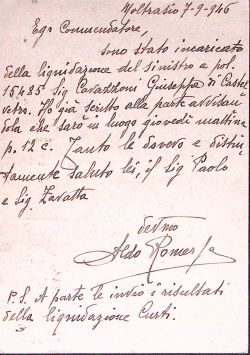 Moltrasio 7-9-946
Egr Commendatore,
sono stato incaricato
della liquidazione del sinistro a pol.
15485 sig Cavazzoni Giuseppe di Castel
vetro. Ho già scritto alla parte avvisan
dola che sarò in luogo giovedì mattina
p. 12 c. Tanto le dovevo e distin
tamente saluto lei, il Sig Paolo
e Sig. Zavatta
devmo
Aldo Romersa
P.S. A parte le invio i risultati
della liquidazione Curti.